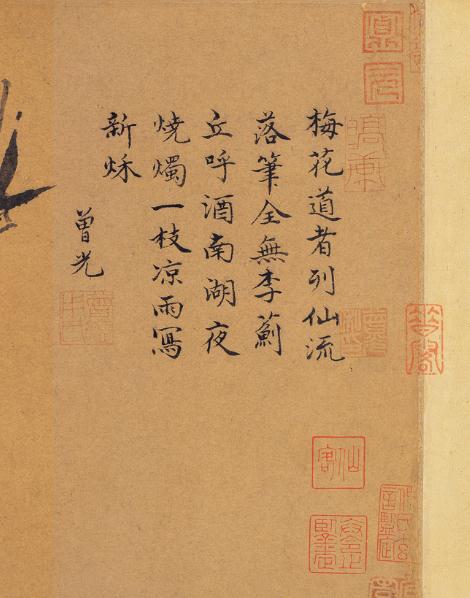 梅花道者列仙流
落筆全無李薊
丘呼酒南湖夜
燒燭一枝凉雨寫
新秌
曾光
仙客